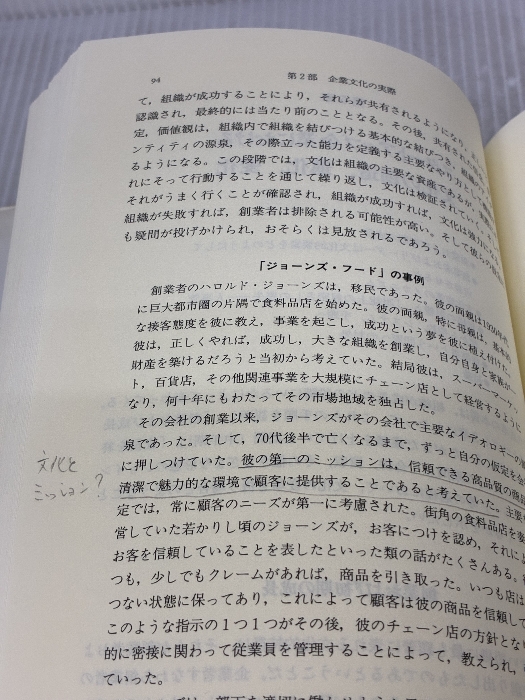 94
第2部 企業文化の実際
て，組織が成功することにより，それらが共有されるようになり，
認識され，最終的には当たり前のこととなる。その後，共有され
定，価値観は，組織内で組織を結びつける基本的な結びつき，組織の
ンティティの源泉，その際立った能力を定義する主要なやり方として機
るようになる。この段階では，文化は組織の主要な資産であるが，実際
れにそって行動することを通じて繰り返し，文化は検証されていく。
それがうまく行くことが確認され，組織が成功すれば，文化は強力に
組織が失敗すれば，創業者は排除される可能性が高い。そして彼らの
も疑問が投げかけられ，おそらくは見放されるであろう。
「ジョーンズ・フード」の事例
創業者のハロルド・ジョーンズは，移民であった。彼の両親は
に巨大都市圏の片隅で食料品店を始めた。彼の両親，特に母親は，基本的
な接客態度を彼に教え，事業を起こし，成功という夢を彼に植え付けた。
彼は，正しくやれば，成功し，大きな組織を創業し，自分自身と家族が
財産を築けるだろうと当初から考えていた。結局彼は，スーパーマーケッ
ト，百貨店，その他関連事業を大規模にチェーン店として経営するように
なり，何十年にもわたってその市場地域を独占した。
その会社の創業以来，ジョーンズがその会社で主要なイデオロギーの源
泉であった。そして，70代後半で亡くなるまで，ずっと自分の仮定を会
に押しつけていた。彼の第一のミッションは，信頼できる高品質の商品
清潔で魅力的な環境で顧客に提供することであると考えていた。主要
定では，常に顧客のニーズが第一に考慮された。街角の食料品店を妻
営していた若かりし頃のジョーンズが，お客につけを認め，それによ
お客を信頼していることを表したといった類の話がたくさんある。
つも，少しでもクレームがあれば，商品を引き取った。いつも店は
つない状態に保ってあり，これによって顧客は彼の商品を信頼して
このような指示の1つ1つがその後，彼のチェーン店の方針とな
的に密接に関わって従業員を管理することによって，教えられ，
ていった。
文化と
ミッション？